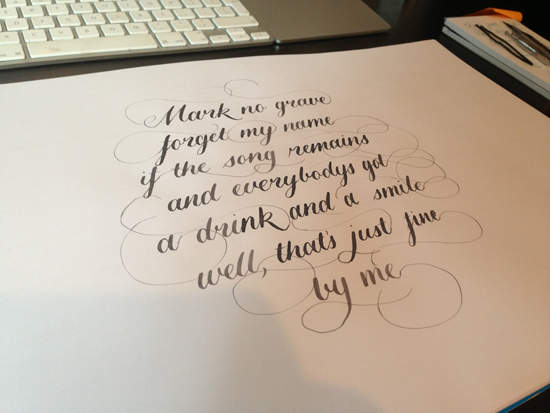 Mark no grave
forget my name
if the song remains
and everybodys got
a drink and a smile
well, that's just fine
by me